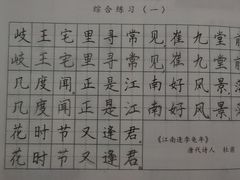 综合练习（一）
岐王宅里寻常见崔九堂前
岐王宅里寻常见崔九堂前
几度闻正是江南好风景落
几度闻正是江南好风景落
花时节又逢君
《江南逢李龟年》
花时节又逢君
唐代诗人 杜甫